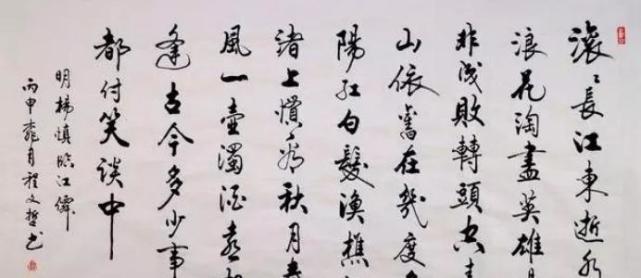 滚〻長江東逝水
浪花淘盡英雄
非成敗轉頭空
山依舊在幾度
陽紅白髮漁樵
渚上慣看秋月
風一壺濁酒喜
逢古今多少事
都付笑談中
明楊慎臨江僊
丙申年程文哲书